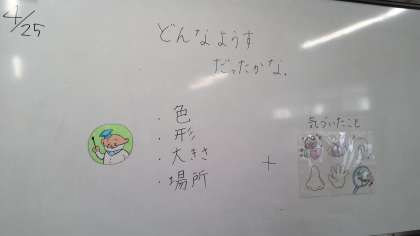 4/25
どんなようす
だったかな。
・色
・形
・大きさ
・場所
+
気づいたこと